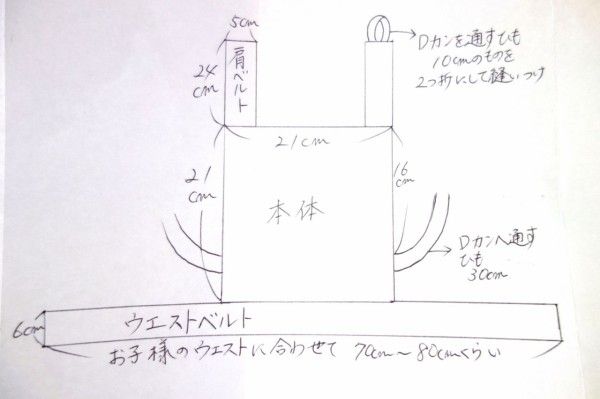 5cm
24
cm
肩ベルト
Dカンを通すひも
10cmのものを
2つ折にして縫いつけ
21cm
21
cm
16
cm
本体
Dカンへ通す
ひも
30cm
6cm
ウエストベルト
お子様のウエストに合わせて 70cm〜80cmくらい